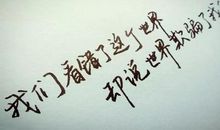 我们看错了这个世界
却说世界欺骗了我